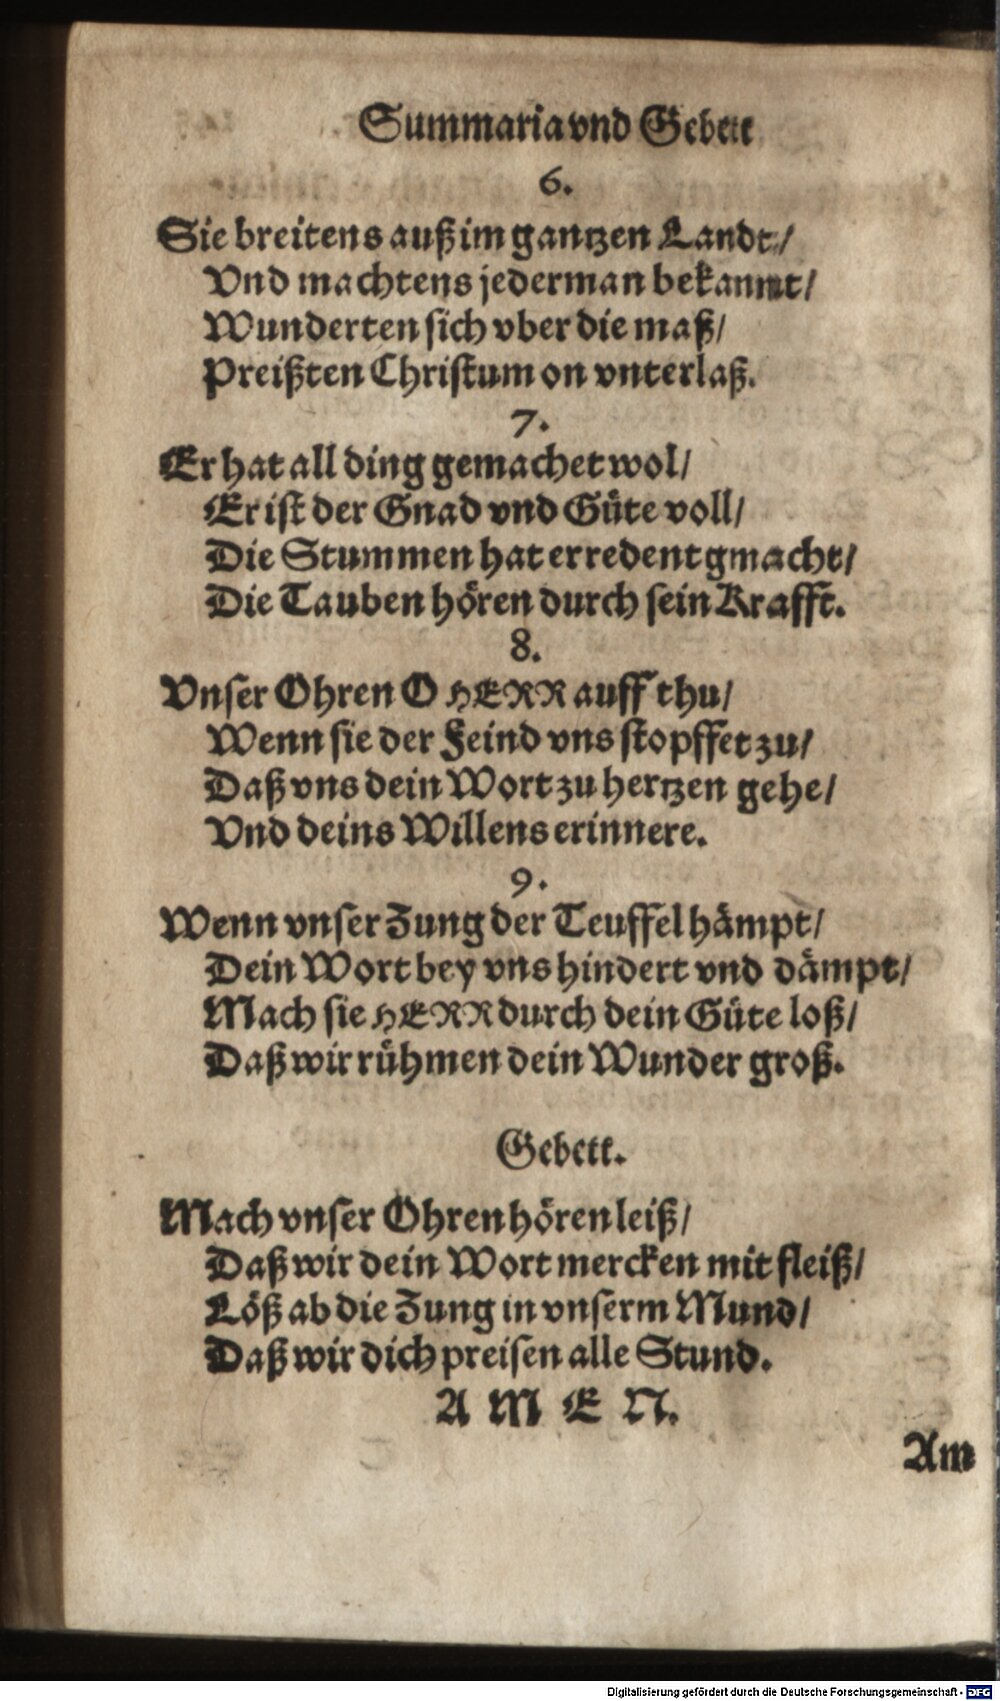 Summaria vnd Gebett
6.
Sie breitens auß im gantzen Landt/
Vnd machtens jederman bekannt/
Wunderten sich vber die maß/
Preißten Christum on vnterlaß.
7.
Er hat all ding gemachet wol/
Er ist der Gnad vnd Güte voll/
Die Stummen hat er redent gmacht/
Die Tauben hören durch sein Krafft.
8.
Vnser Ohren O HERR auff thu/
Wenn sie der Feind vns stopffet zu/
Daß vns dein Wort zu hertzen gehe/
Vnd deins Willens erinnere.
9.
Wenn vnser Zung der Teuffel hämpt/
Dein Wort bey vns hindert vnd dämpt/
Mach sie HERR durch dein Güte loß/
Daß wir rühmen dein Wunder groß.
Gebett.
Mach vnser Ohren hören leiß/
Daß wir dein Wort mercken mit fleiß/
Löß ab die Zung in vnserm Mund/
Daß wir dich preisen alle Stund.
A M E N.
Am
Digitalisierung gefördert durch die Deutsche Forschungsgemeinschaft - DFG